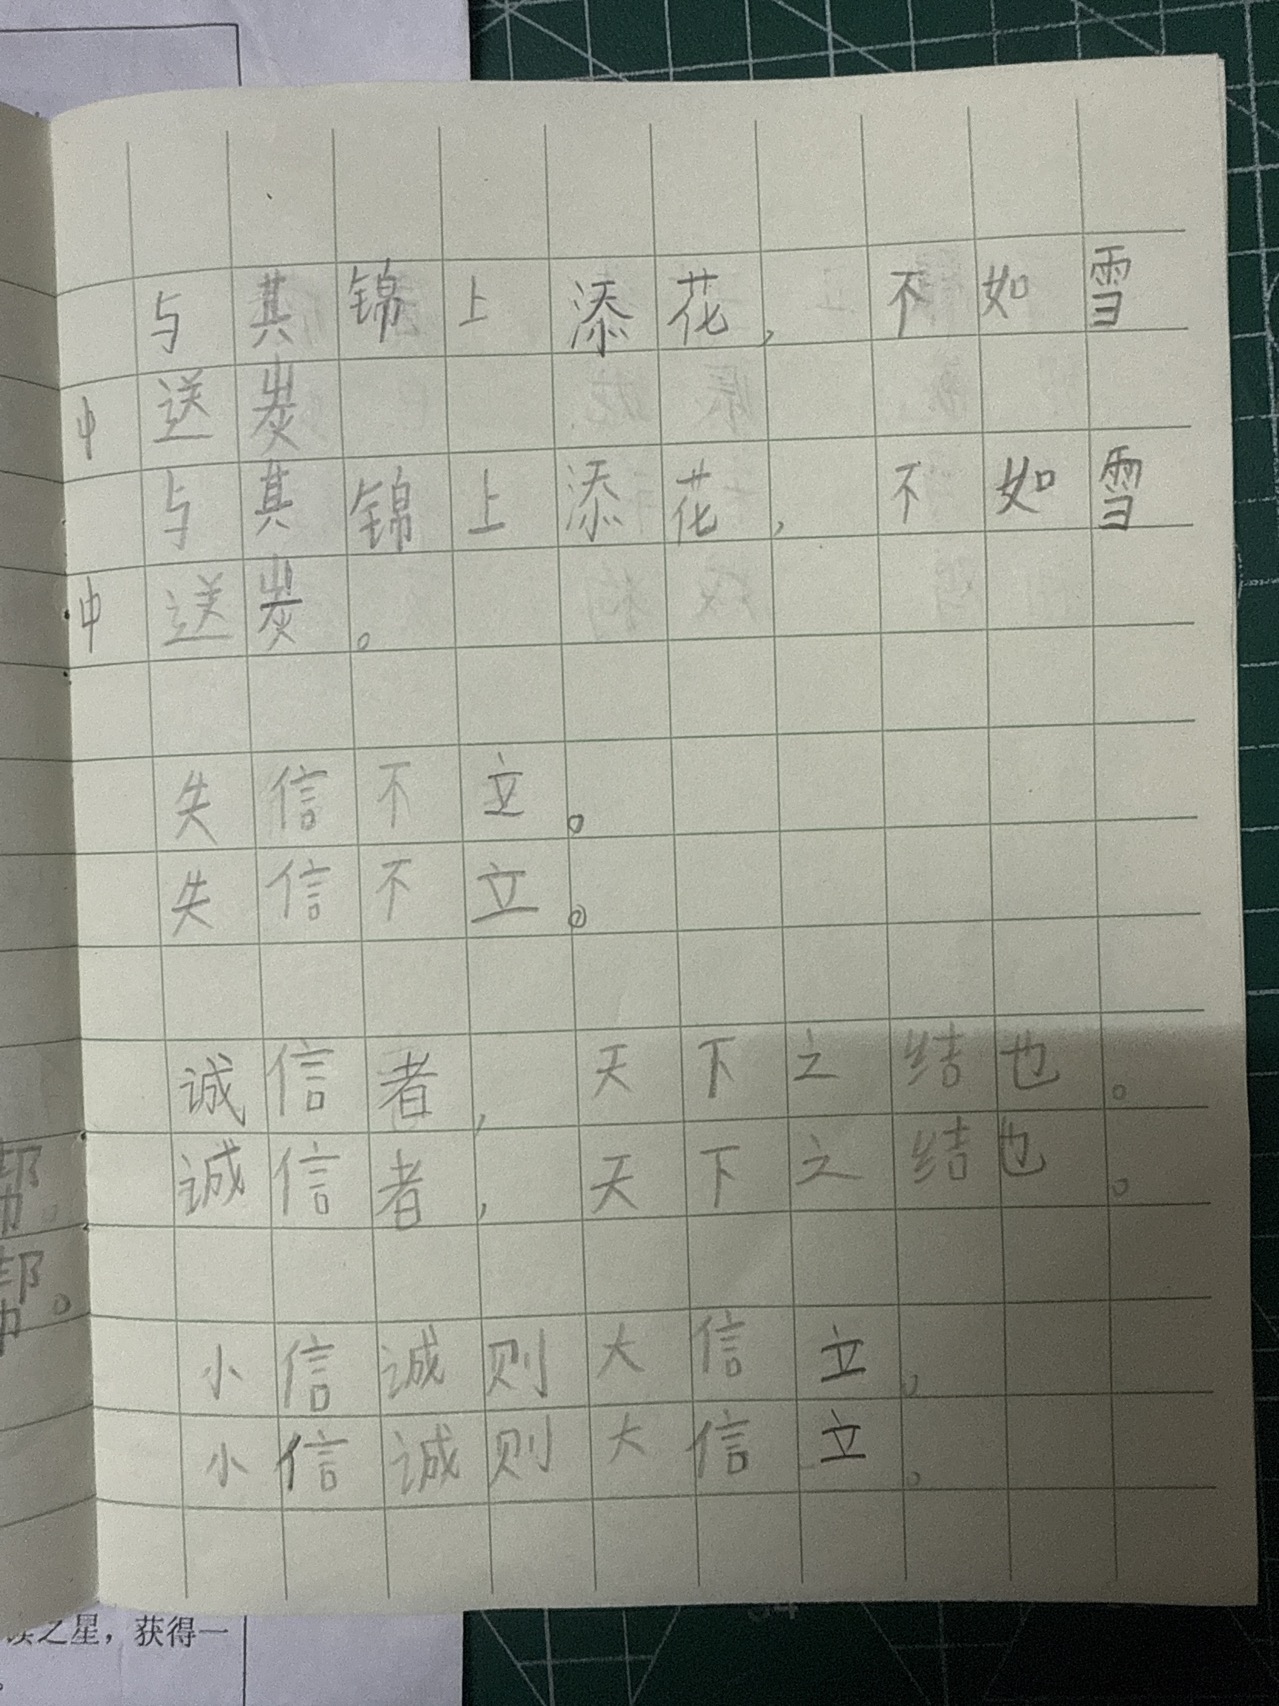 与其锦上添花，不如雪
中送炭
与其锦上添花，不如雪
中送炭。
失信不立。
失信不立。
诚信者，天下之结也。
诚信者，天下之结也。
小信诚则大信立，
小信诚则大信立。
帮。
帮。
之星，获得一